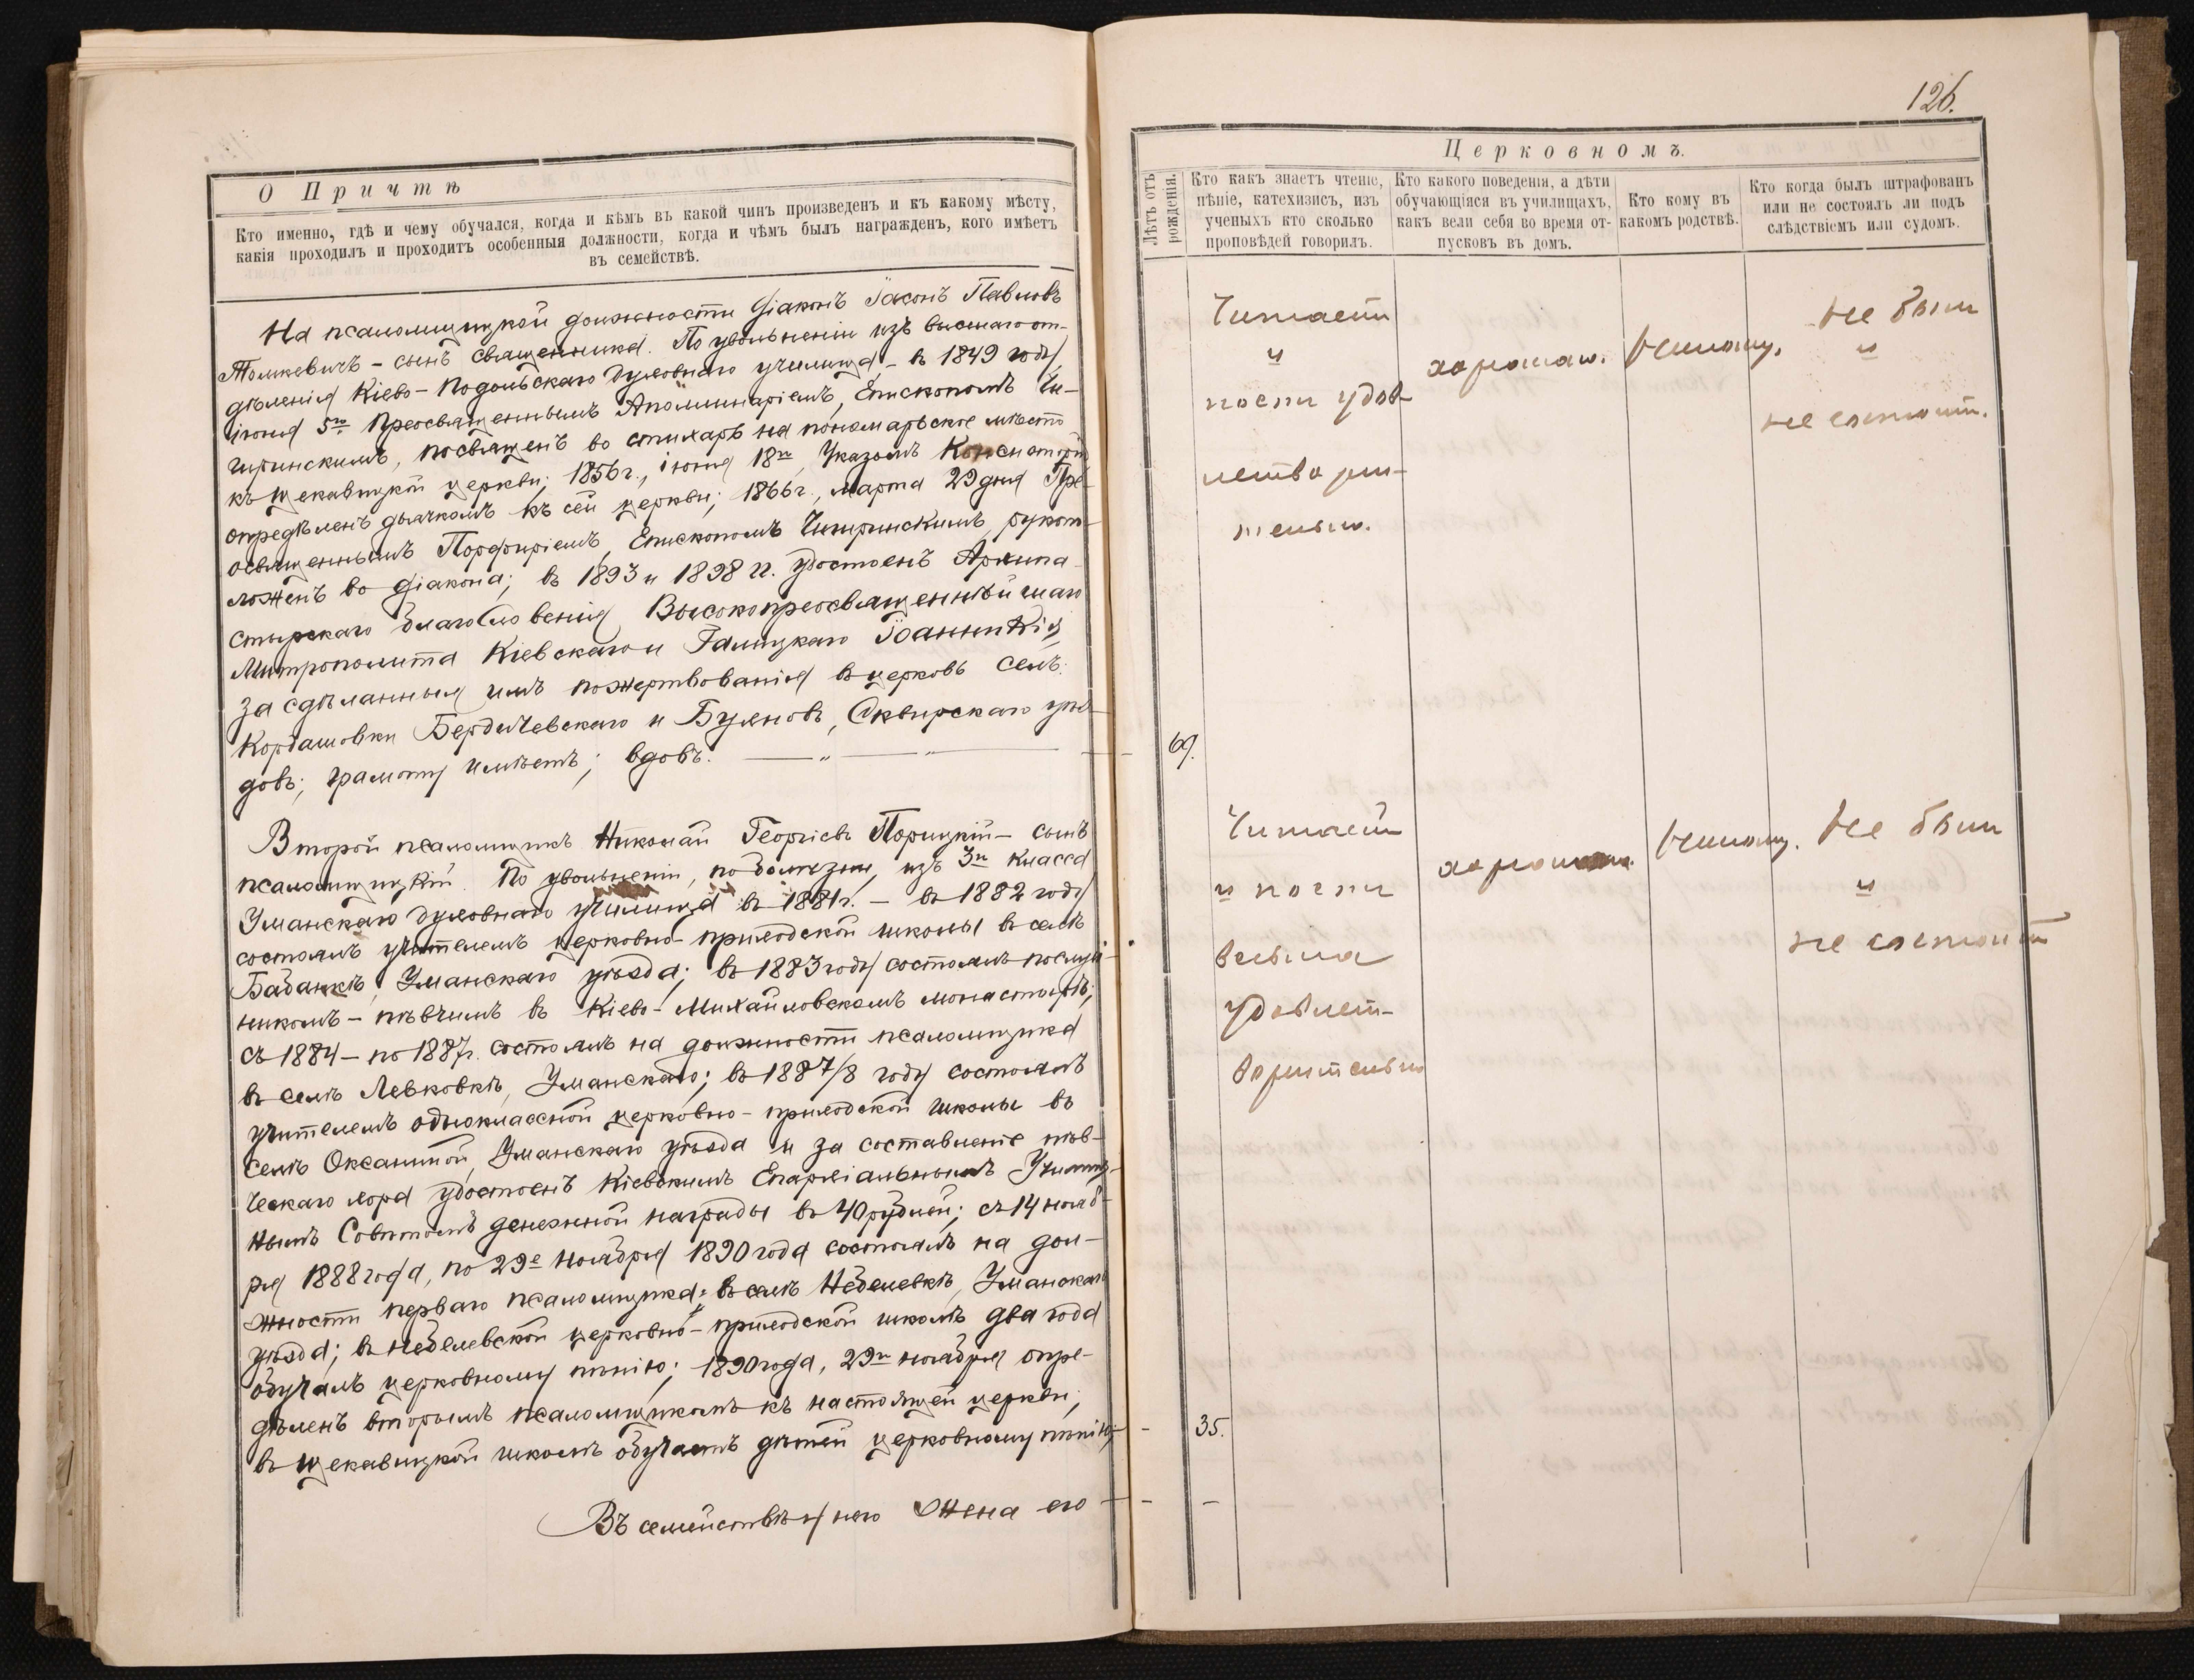 О Причтѣ
Кто именно, гдѣ и чему обучался, когда и кѣмъ въ какой чинъ произведенъ и къ какому мѣсту,
какія проходилъ и проходитъ особенныя должности, когда и чѣмъ былъ награжденъ, кого имѣетъ
въ семействѣ.
На псаломщицкой должности діаконъ Іасонъ Павловъ
Толмкевичъ - сынъ священника. По увольненіи изъ высшаго от-
дѣленія Кіево-Подольскаго духовнаго училища, - въ 1849 году,
іюня 5го Преосвященнымъ Аполлинаріемъ, Епископомъ Чи-
гиринскимъ, посвященъ во стихарь на пономарьское мѣсто
къ Щекавицкой церкви; 1856 г., іюня 18го, Указомъ Консисторіи
опредѣленъ дьячкомъ къ сей церкви; 1866 г., марта 29 дня Пре-
освященнымъ Порфиріемъ, Епископомъ Чигиринскимъ, рукопо-
ложенъ во діакона; въ 1893 и 1898 гг. удостоенъ Архипа-
стырскаго благословенія Высокопреосвященнѣйшаго
Митрополита Кіевскаго и Галицкаго Іоанникія,
за сдѣланныя имъ пожертвованія въ церковь селъ:
Кордашовки Бердичевскаго и Буяновъ, Сквирскаго уѣз-
довъ; грамоту имѣетъ; вдовъ. — „ — „ —
Второй псаломщикъ Николай Георгіевъ Порицкій - сынъ
псаломщицкій. По увольненіи, по болѣзни, изъ 3го класса
Уманскаго духовнаго училища въ 1881 г. - въ 1882 году
состоялъ учителемъ церковно-приходской школы въ селѣ
Бабанкѣ, Уманскаго уѣзда; въ 1883 году состоялъ послуш-
никомъ - пѣвчимъ въ Кіево-Михайловскомъ монастырѣ;
съ 1884 - по 1887 г. состоялъ на должности псаломщика
въ селѣ Левковкѣ, Уманскаго; въ 1887/8 году состоялъ
учителемъ одноклассной церковно-приходской школы въ
селѣ Оксаниной, Уманскаго уѣзда и за составленіе пѣв-
ческаго хора удостоенъ Кіевскимъ Епархіальнымъ Училищ-
нымъ Совѣтомъ денежной награды въ 40 рублей; съ 14 нояб-
ря 1888 года, по 29е ноября 1890 года состоялъ на дол-
жности перваго псаломщика въ селѣ Небелевкѣ, Уманскаго
уѣзда; въ Небелевской церковно-приходской школѣ два года
обучалъ церковному пѣнію; 1890 года, 29го ноября опре-
дѣленъ вторымъ псаломщикомъ къ настоящей церкви;
въ Щекавицкой школѣ обучаетъ дѣтей церковному пѣнію.
Въ семействѣ у него жена его —
126.
Церковномъ.
Лѣтъ отъ рожденія.
Кто какъ знаетъ чтеніе,
пѣніе, катехизисъ, изъ
ученыхъ кто сколько
проповѣдей говорилъ.
Кто какого поведенія, а дѣти
обучающіяся въ училищахъ,
какъ вели себя во время от-
пусковъ въ домъ.
Кто кому въ
какомъ родствѣ.
Кто когда былъ штрафованъ
или не состоялъ ли подъ
слѣдствіемъ или судомъ.
Читаетъ
и
поетъ удов-
летвори-
тельно.
хорошаго.
Никому.
Не былъ
и
не состоитъ.
69.
Читаетъ
и поетъ
весьма
удовлет-
ворительно
хорошаго.
Никому.
Не былъ
и
не состоитъ
35.